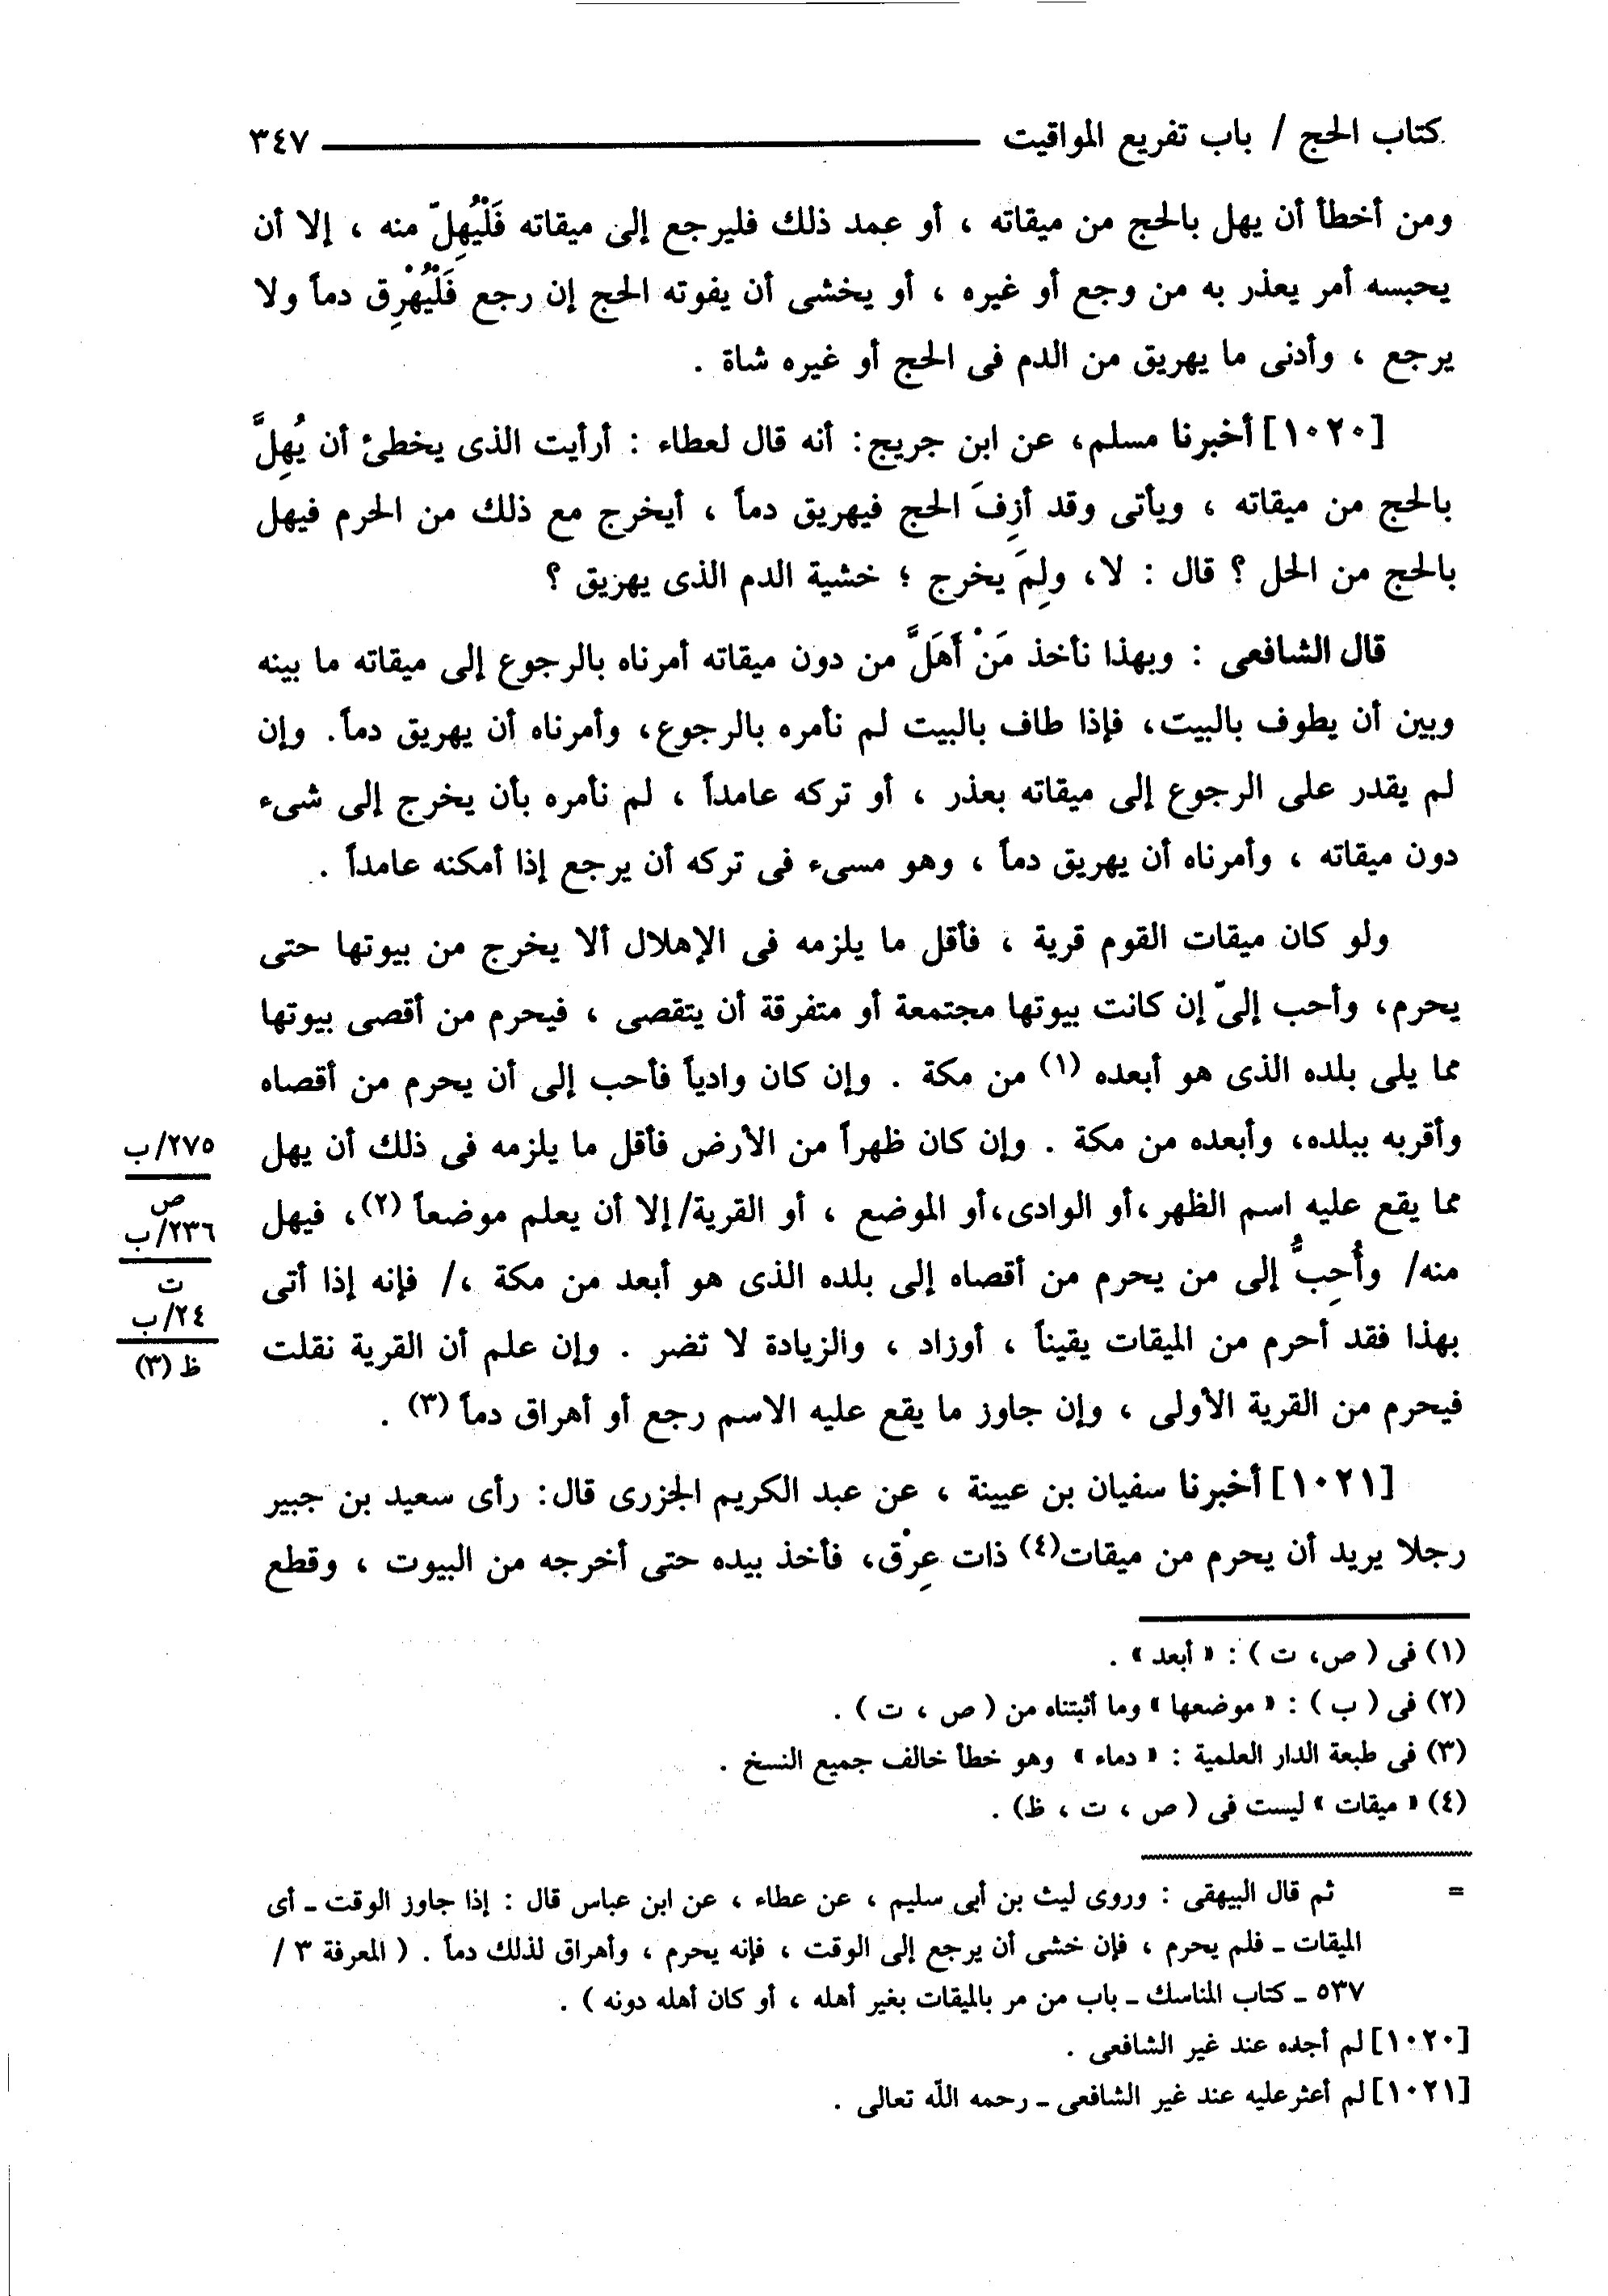 كتاب الحج / باب تفريع المواقيت ٣٤٧
ومن أخطأ أن يهل بالحج من ميقاته ، أو عمد ذلك فليرجع إلى ميقاته فَلْيُهِلّ منه ، إلا أن
يحبسه أمر يعذر به من وجع أو غيره ، أو يخشى أن يفوته الحج إن رجع فَلْيُهْرِق دماً ولا
يرجع ، وأدنى ما يهريق من الدم فى الحج أو غيره شاة .
[١٠٢٠] أخبرنا مسلم، عن ابن جريج: أنه قال لعطاء : أرأيت الذى يخطئ أن يُهِلَّ
بالحج من ميقاته ، ويأتى وقد أزِفَ الحج فيهريق دماً ، أيخرج مع ذلك من الحرم فيهل
بالحج من الحل ؟ قال : لا، ولِمَ يخرج ؛ خشية الدم الذى يهريق ؟
قال الشافعى : وبهذا نأخذ مَنْ أَهَلَّ من دون ميقاته أمرناه بالرجوع إلى ميقاته ما بينه
وبين أن يطوف بالبيت، فإذا طاف بالبيت لم نأمره بالرجوع، وأمرناه أن يهريق دماً. وإن
لم يقدر على الرجوع إلى ميقاته بعذر ، أو تركه عامداً ، لم نأمره بأن يخرج إلى شىء
دون ميقاته ، وأمرناه أن يهريق دماً ، وهو مسىء فى تركه أن يرجع إذا أمكنه عامداً .
ولو كان ميقات القوم قرية ، فأقل ما يلزمه فى الإهلال ألا يخرج من بيوتها حتى
يحرم، وأحب إلىّ إن كانت بيوتها مجتمعة أو متفرقة أن يتقصى ، فيحرم من أقصى بيوتها
مما يلى بلده الذى هو أبعده (١) من مكة . وإن كان وادياً فأحب إلى أن يحرم من أقصاه
وأقربه ببلده، وأبعده من مكة . وإن كان ظهراً من الأرض فأقل ما يلزمه فى ذلك أن يهل
مما يقع عليه اسم الظهر،أو الوادى،أو الموضع ، أو القرية/إلا أن يعلم موضعاً (٢)، فيهل
منه/ وأُحِبُّ إلى من يحرم من أقصاه إلى بلده الذى هو أبعد من مكة ،/ فإنه إذا أتى
بهذا فقد أحرم من الميقات يقيناً ، أوزاد ، والزيادة لا تضر . وإن علم أن القرية نقلت
فيحرم من القرية الأولى ، وإن جاوز ما يقع عليه الاسم رجع أو أهراق دماً (٣) .
[١٠٢١] أخبرنا سفيان بن عيينة ، عن عبد الكريم الجزرى قال: رأى سعيد بن جبير
رجلا يريد أن يحرم من ميقات(٤) ذات عِرْق، فأخذ بيده حتى أخرجه من البيوت ، وقطع
٢٧٥/ب
ص
٢٣٦/ب
ت
٢٤/ب
ظ (٣)
(١) فى ( ص، ت ) : « أبعد » .
(٢) فى ( ب ) : « موضعها » وما أثبتناه من ( ص ، ت ) .
(٣) فى طبعة الدار العلمية : « دماء » وهو خطأ خالف جميع النسخ .
(٤) « ميقات » ليست فى ( ص ، ت ، ظ) .
= ثم قال البيهقى : وروى ليث بن أبى سليم ، عن عطاء ، عن ابن عباس قال : إذا جاوز الوقت ـ أى
الميقات ـ فلم يحرم ، فإن خشى أن يرجع إلى الوقت ، فإنه يحرم ، وأهراق لذلك دماً . ( المعرفة ٣ /
٥٣٧ ـ كتاب المناسك ـ باب من مر بالميقات بغير أهله ، أو كان أهله دونه ) .
[١٠٢٠] لم أجده عند غير الشافعى .
[١٠٢١] لم أعثرعليه عند غير الشافعى ـ رحمه اللّه تعالى .